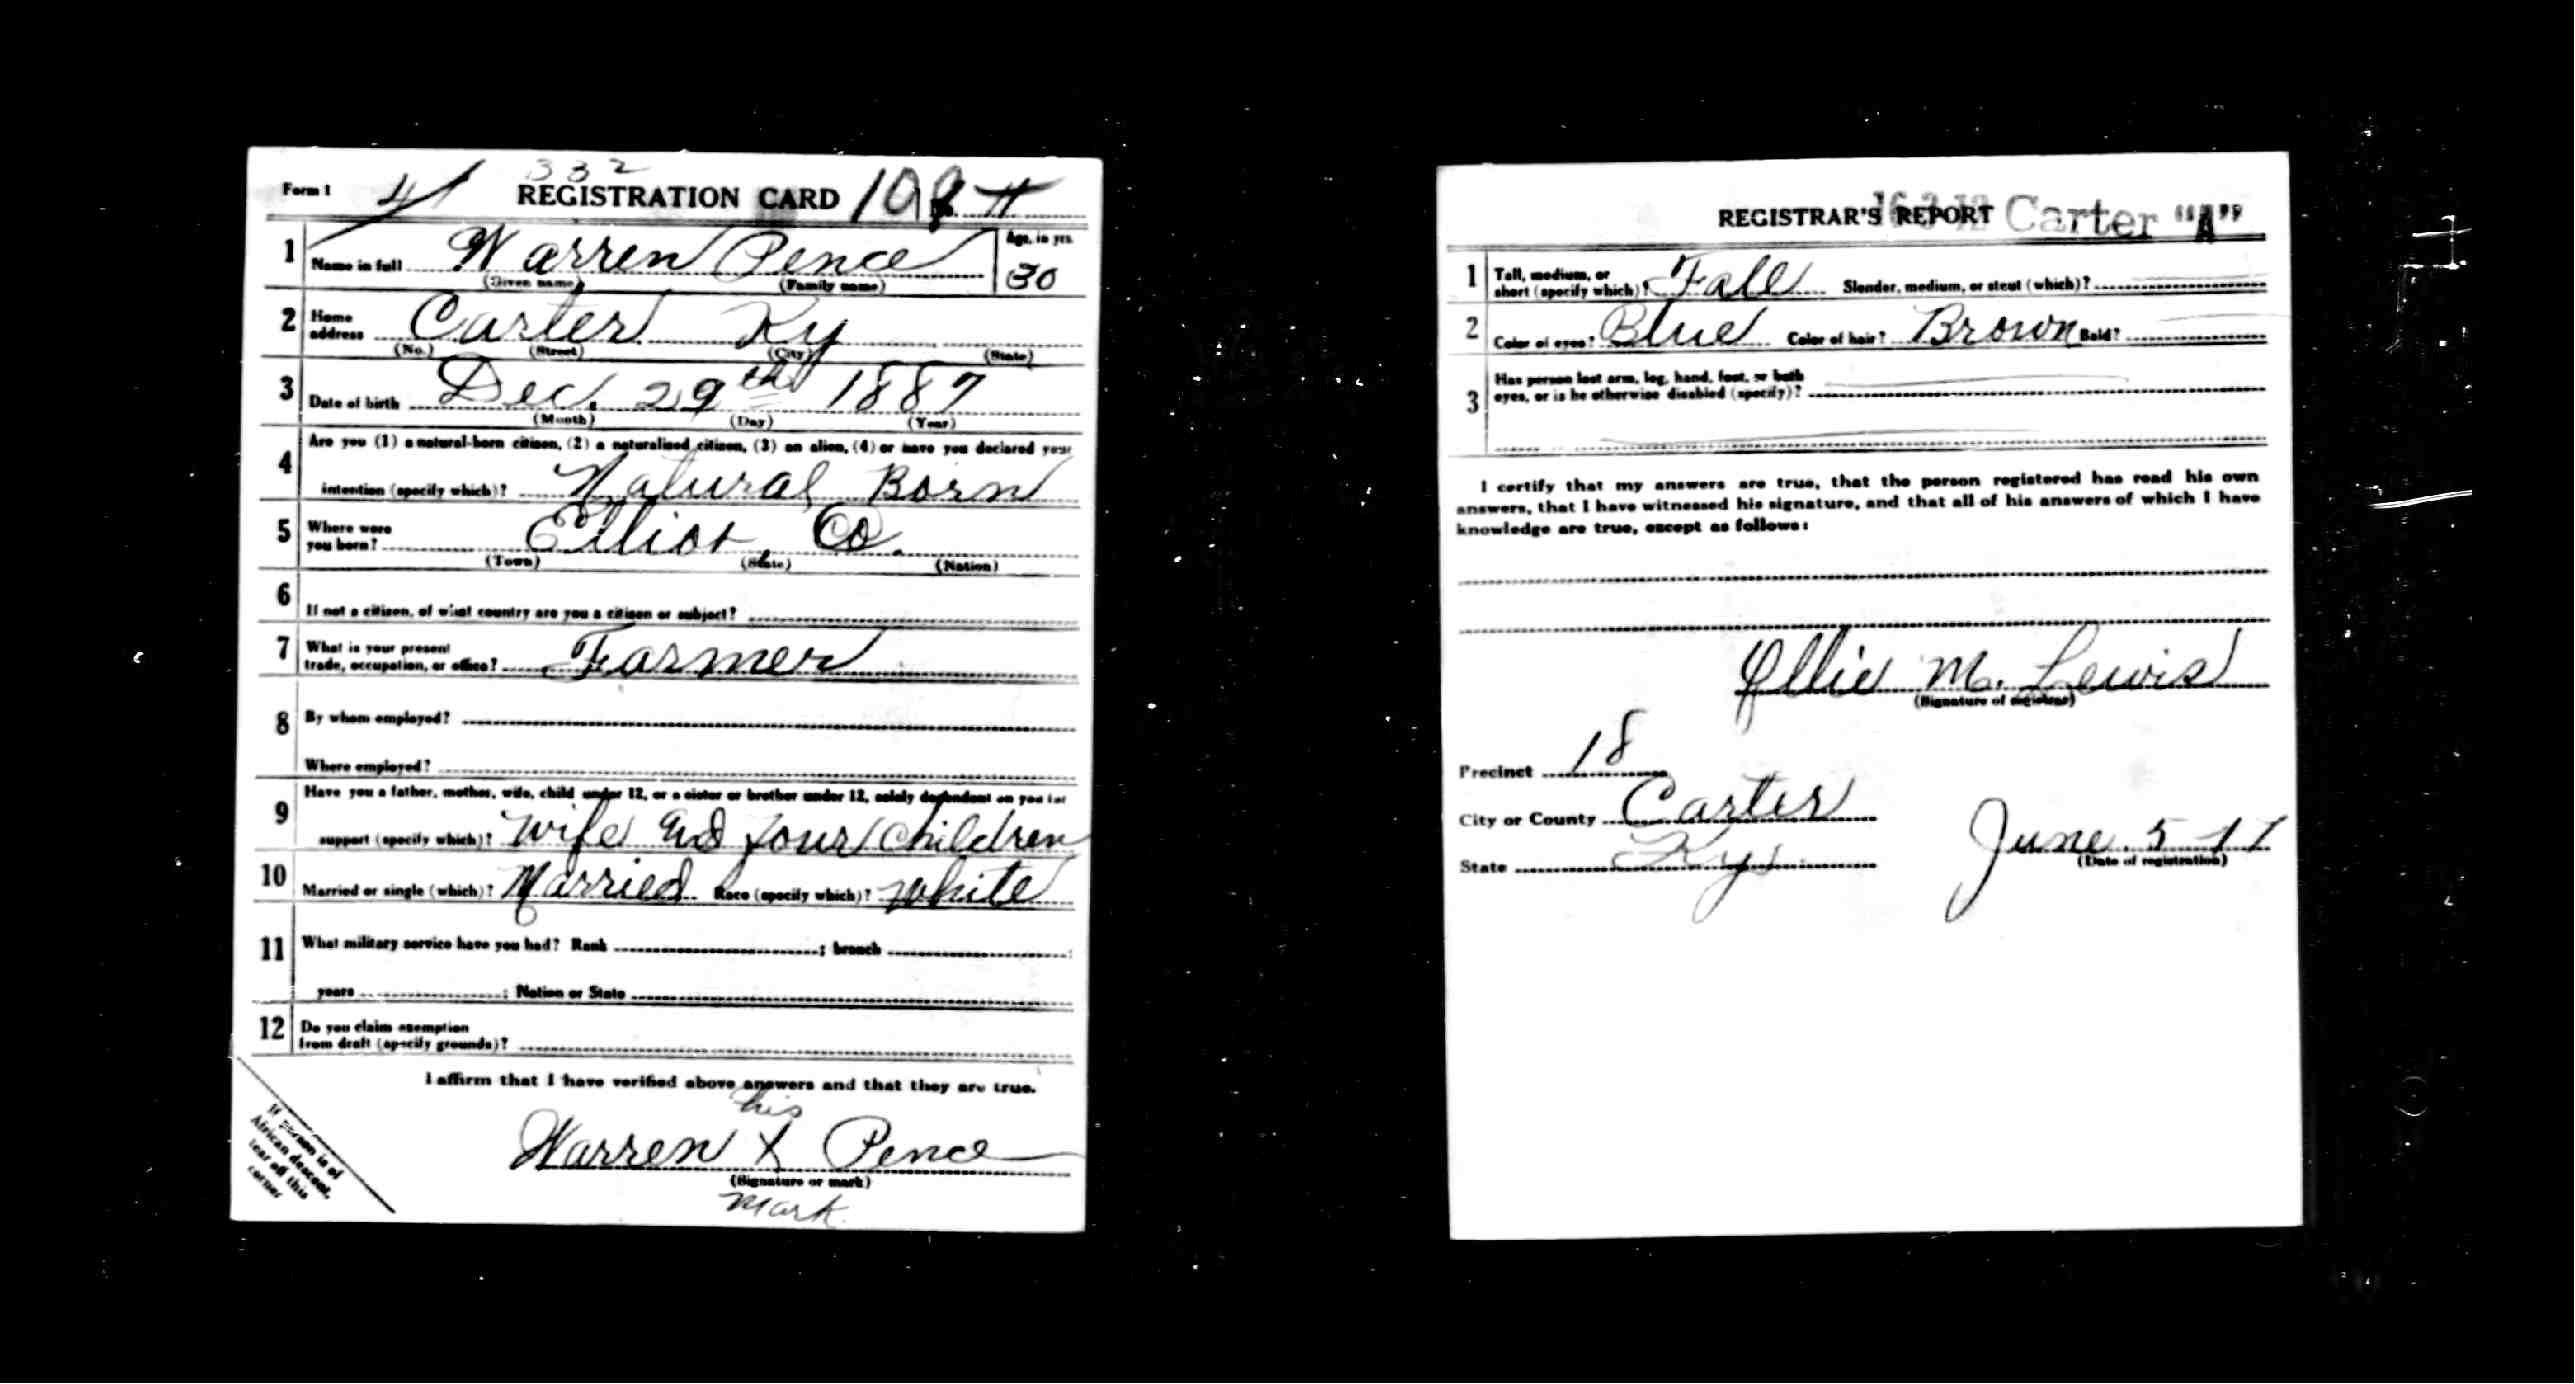 332
Form 1 41 REGISTRATION CARD No.
1 Name in full Warren Pence Age, in yrs. 30
(Given name) (Family name)
2 Home address Carter Ky
(No.) (Street) (City) (State)
3 Date of birth Dec. 29th 1887
(Month) (Day) (Year)
4 Are you (1) a natural-born citizen, (2) a naturalized citizen, (3) an alien, (4) or have you declared your
intention (specify which)? Natural Born
5 Where were you born? Elliot, Co.
(Town) (State) (Nation)
6 If not a citizen, of what country are you a citizen or subject?
7 What is your present trade, occupation, or office? Farmer
8 By whom employed?
Where employed?
9 Have you a father, mother, wife, child under 12, or a sister or brother under 12, solely dependent on you for
support (specify which)? Wife and four children
10 Married or single (which)? Married Race (specify which)? White
11 What military service have you had? Rank ; branch ;
years ; Nation or State
12 Do you claim exemption
from draft (specify grounds)?
I affirm that I have verified above answers and that they are true.
his
Warren X Pence
(Signature or mark)
Mark
If person is of
African descent,
tear off this
corner
REGISTRAR'S REPORT Carter "A"
1 Tall, medium, or short (specify which)? Tall Slender, medium, or stout (which)?
2 Color of eyes? Blue Color of hair? Brown Bald?
3 Has person lost arm, leg, hand, foot, or both
eyes, or is he otherwise disabled (specify)?
I certify that my answers are true, that the person registered has read his own
answers, that I have witnessed his signature, and that all of his answers of which I have
knowledge are true, except as follows:
Ollie M. Lewis
(Signature of registrar)
Precinct 18
City or County Carter
State Ky.
June. 5 - 17
(Date of registration)